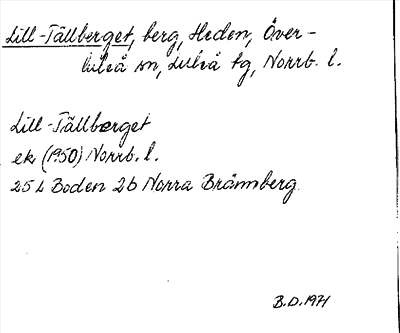 Lill-Tällberget, berg, Heden, Över-
luleå sn, Luleå tg, Norrb. l.
Lill-Tällberget
ek (1950) Norrb. l.
25 L Boden 2b Norra Brännberg
B.D. 1971